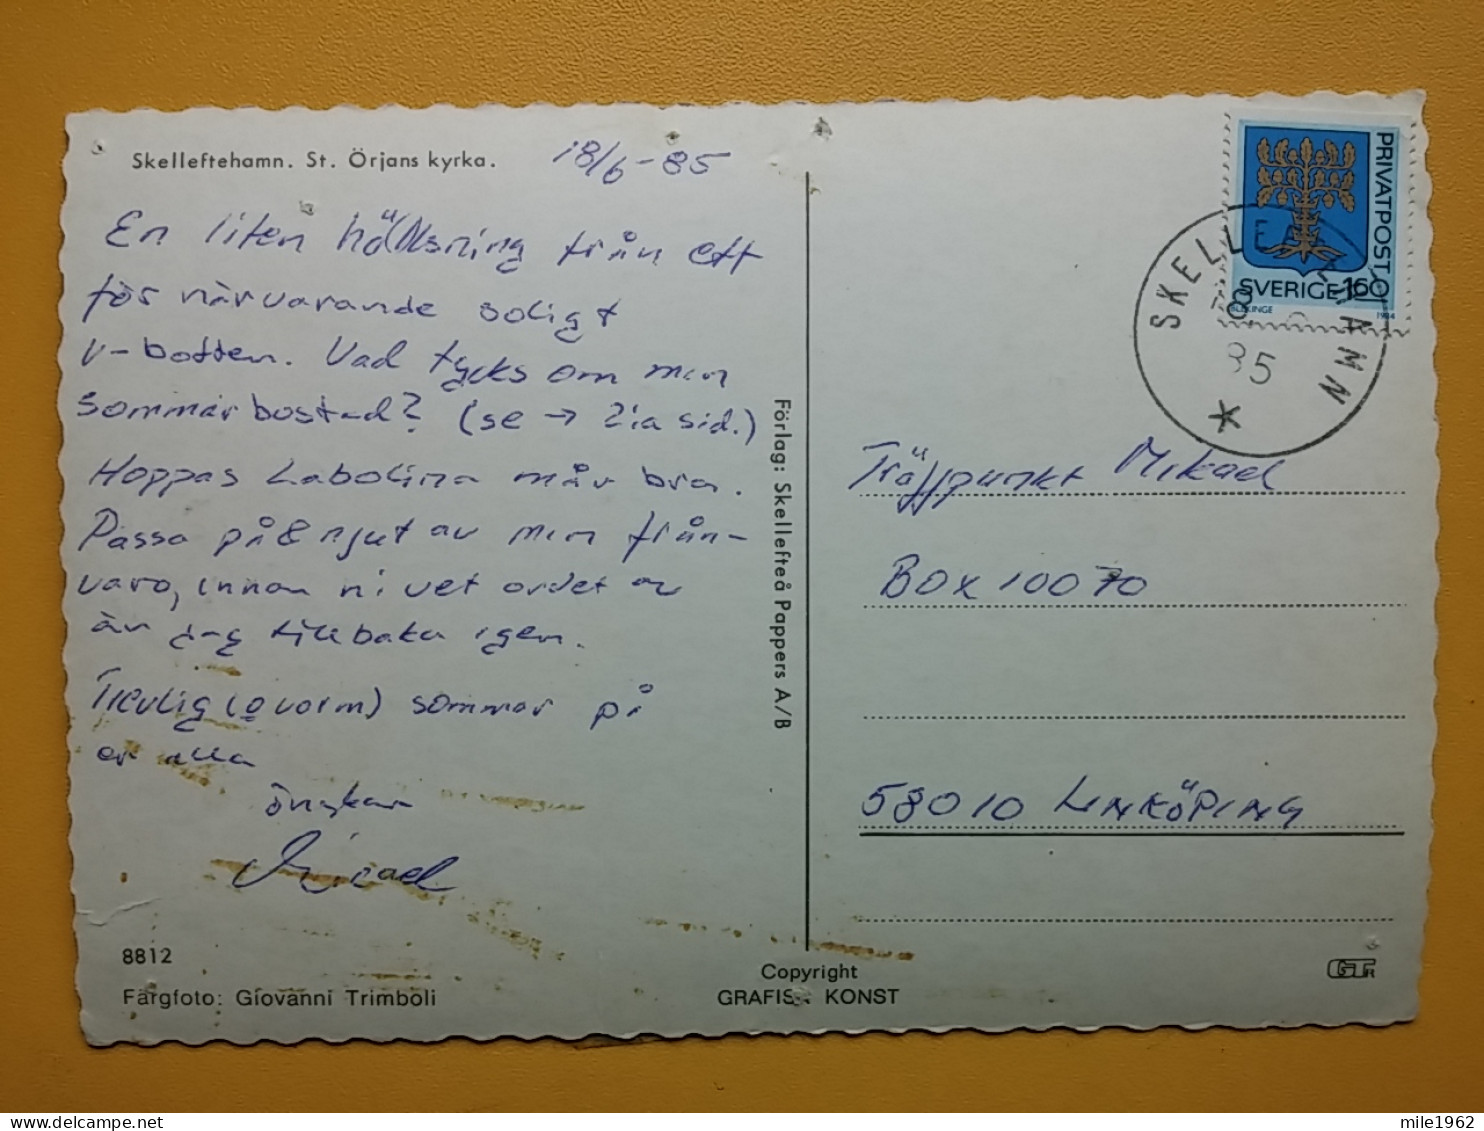 Skelleftehamn. St. Örjans kyrka.
18/6-85
En liten hälsning från ett
för närvarande soligt
v-botten. Vad tycks om min
sommarbostad? (se → 2:a sid.)
Hoppas Labolina mår bra.
Passa på & njut av min från-
varo, innan ni vet ordet av
är jag tillbaka igen.
Trevlig (o varm) sommar på
er alla
önskar
Micael
8812
Färgfoto: Giovanni Trimboli
Förlag: Skellefteå Pappers A/B
Copyright
GRAFISK KONST
PRIVATPOST
SVERIGE 160
BLEKINGE 1984
SKELLEFTEHAMN
18
85
Träffpunkt Mikael
BOX 10070
58010 LINKÖPING
GTR
mile1962